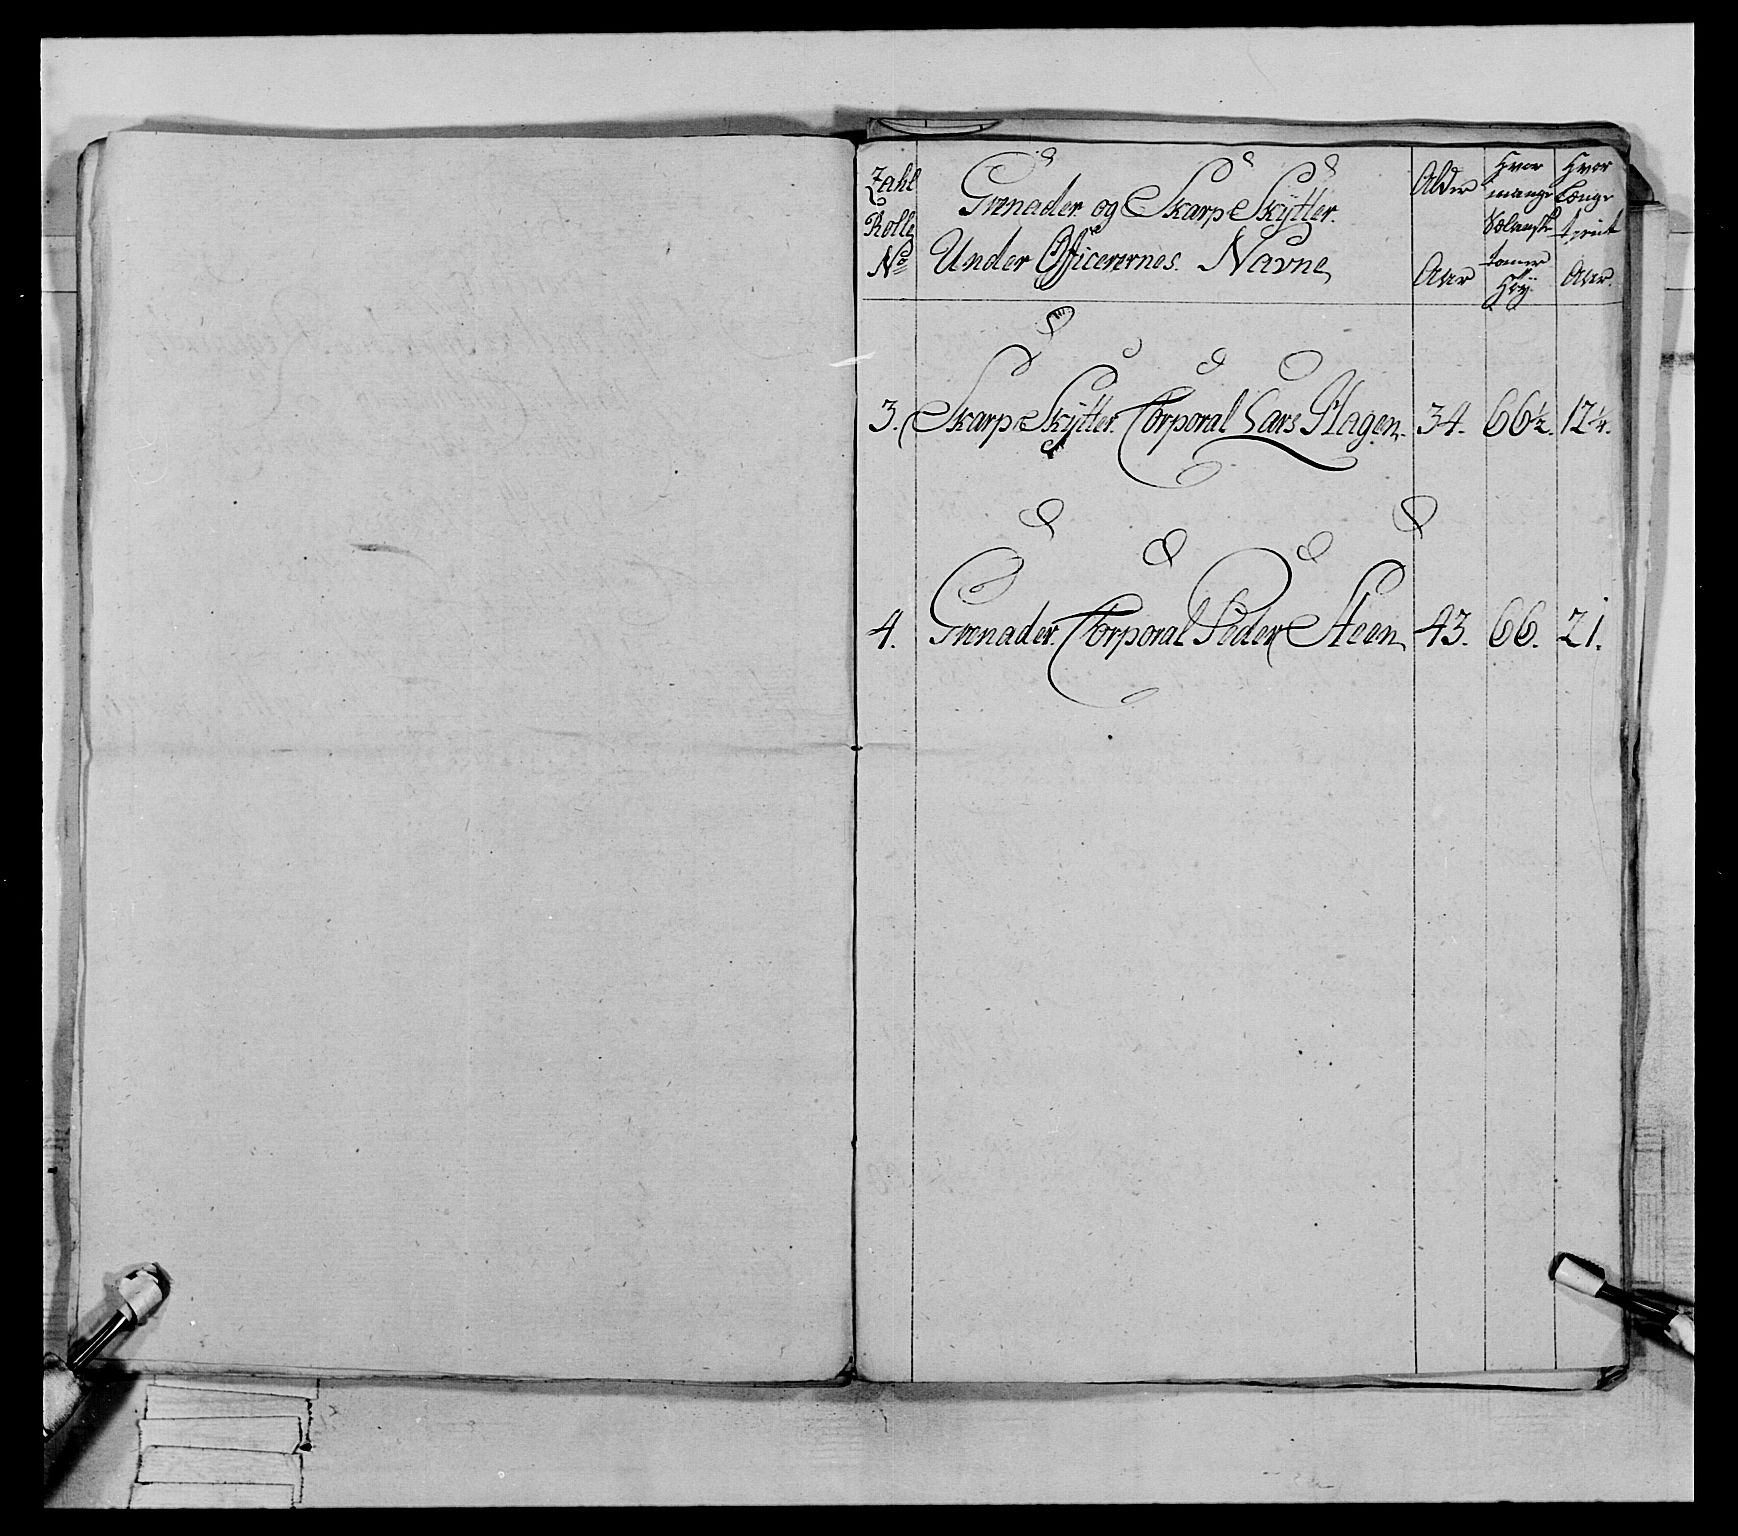 Zahl Rolle No
Grenader og Skarp Skytter.
Under Officerernes. Navne
Alder Aar
Hvor mange Tomer Høy
Hvor længe tient Aar.
3. Skarp Skytter. Corporal Lars Hagen. 34. 66½. 12¼.
4. Grenader. Corporal Peder Steen 43. 66. 21.